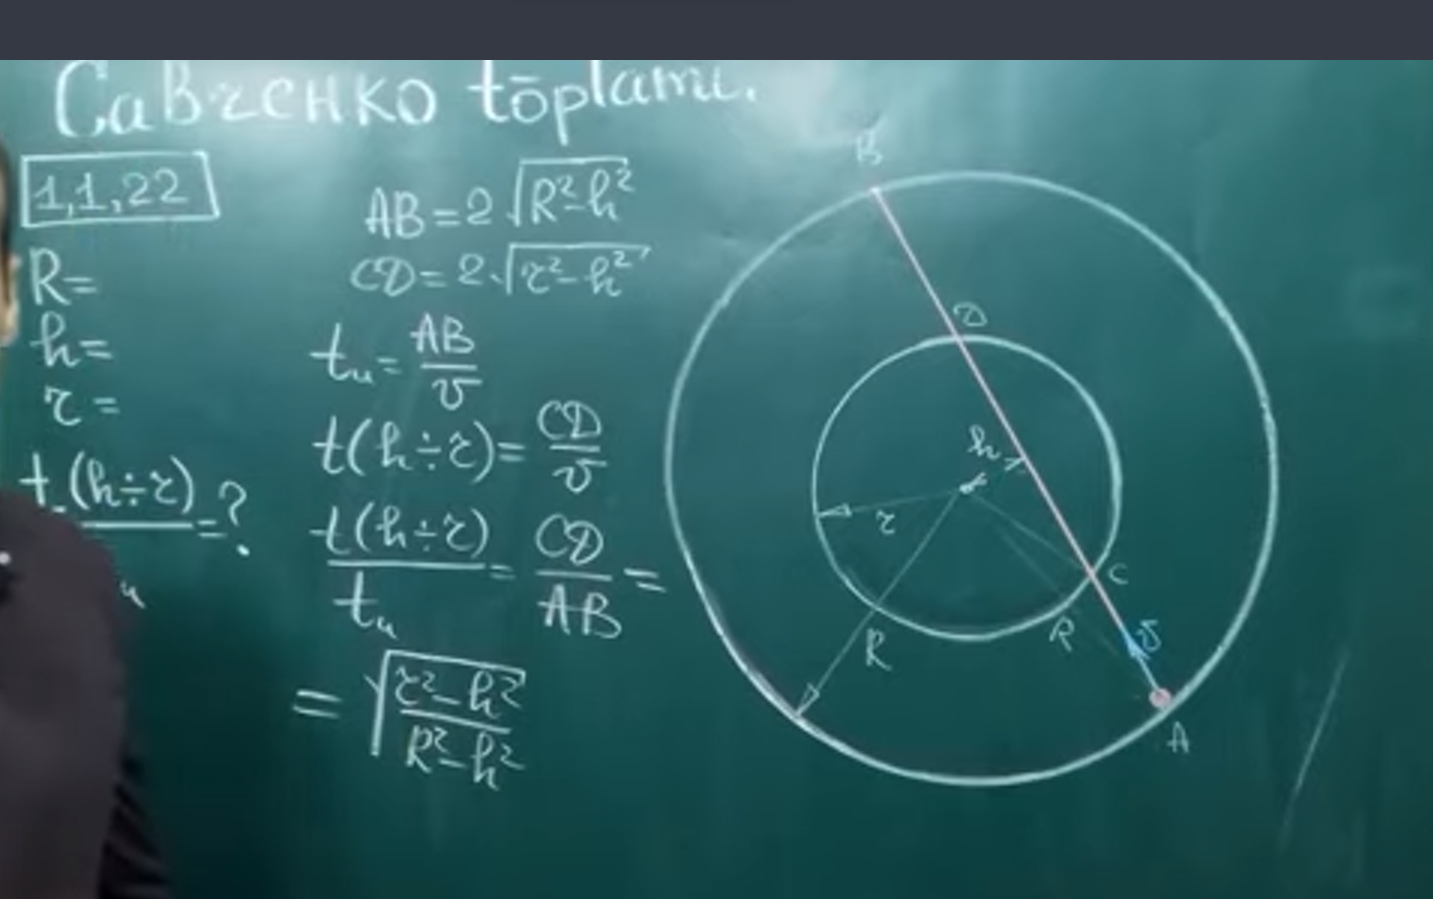 Савченко tōplami.
1,1,22
R=
h=
r=
t(h÷r)/ =?
и
AB=2√(R²-h²)
CD=2·√(r²-h²)
tи=AB/υ
t(h÷r)=CD/υ
t(h÷r)/tи=CD/AB=
=√((r²-h²)/(R²-h²))
B
D
h
r
R
R
C
υ
A